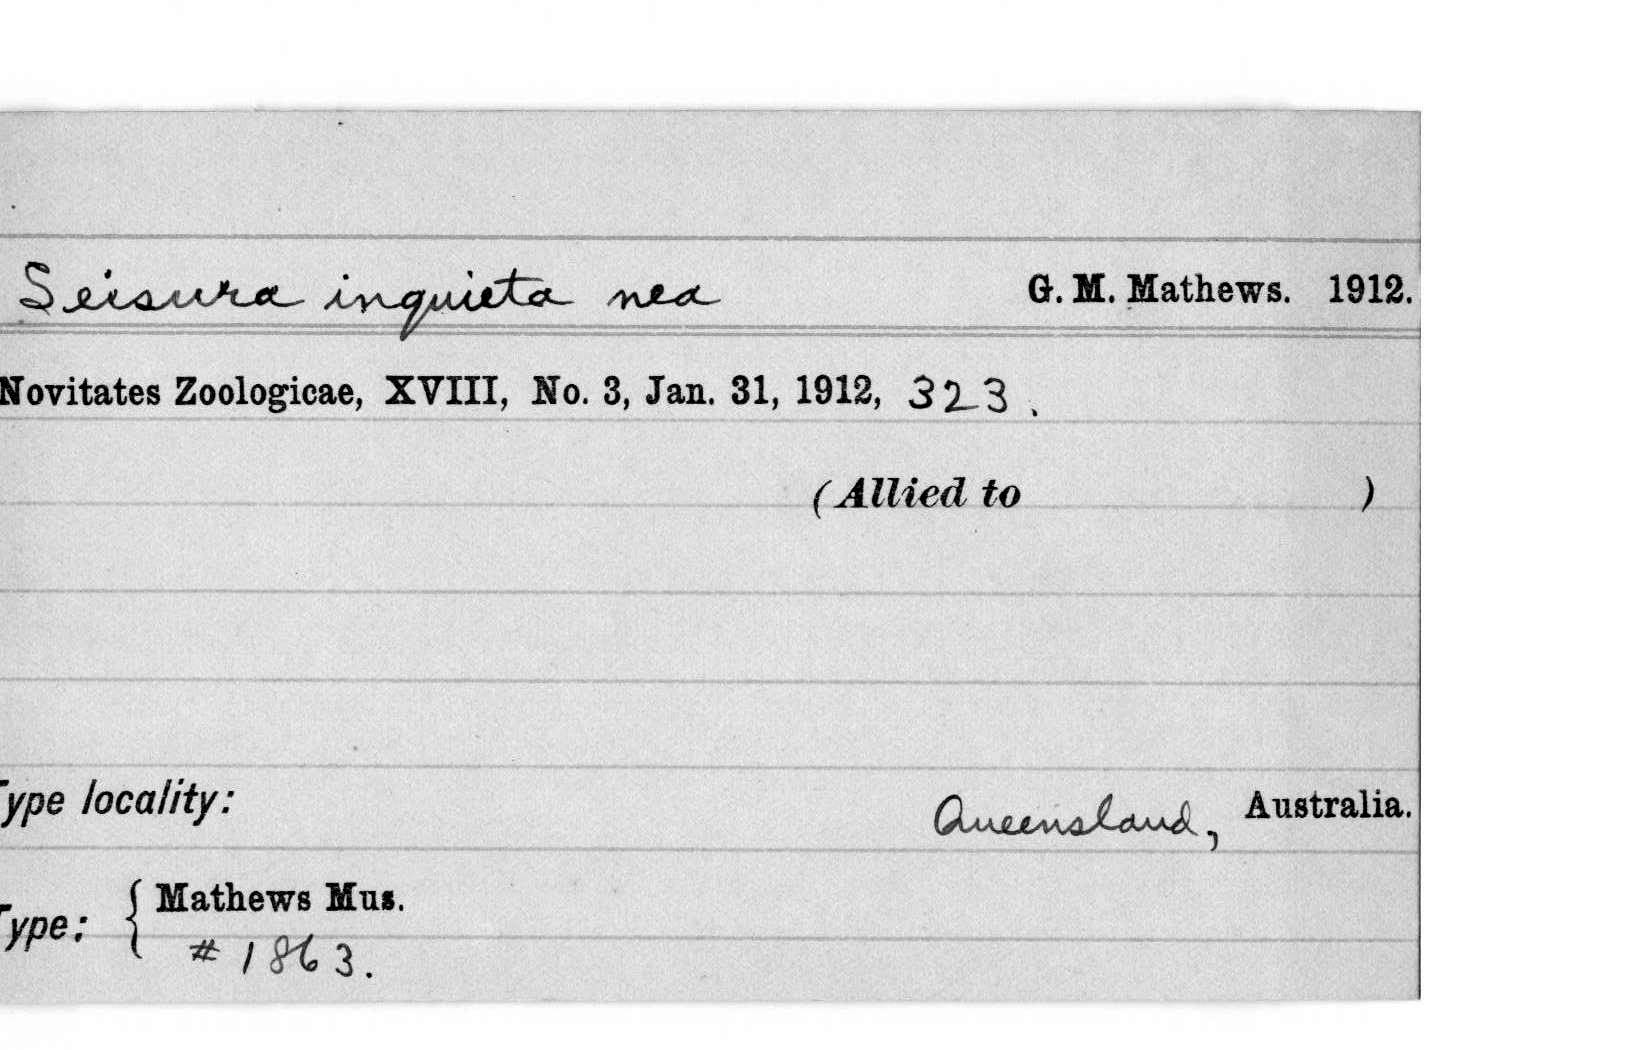 Seisura inquieta nea G. M. Mathews. 1912.
Novitates Zoologicae, XVIII, No. 3, Jan. 31, 1912, 323.
(Allied to )
Type locality: Queensland, Australia.
Type: { Mathews Mus.
# 1863.